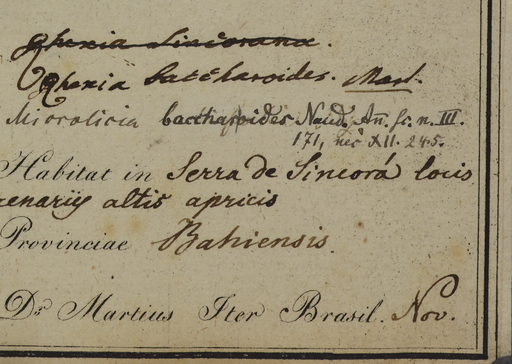 Rhexia Sincorana.
Rhexia baccharoides. Mart.
Microlicia baccharoides Naud. An. sc. n. III.
171, nec XII. 245.
Habitat in Serra de Sincorá locis
renariis altis apricis
Provinciae Bahiensis
Dr. Martius Iter Brasil. Nov.